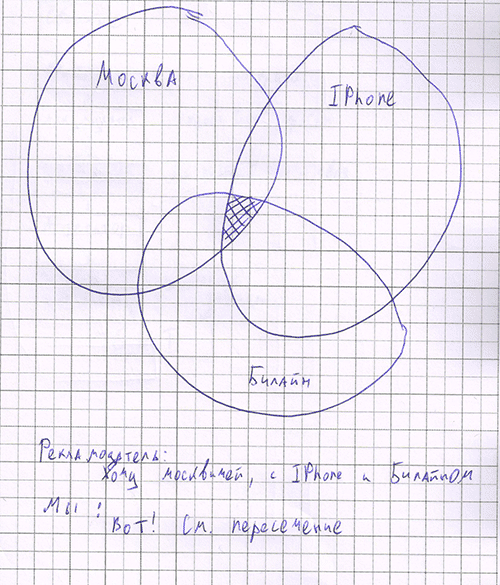 Москва
IPhone
Билайн
Рекламодатель:
Хочу москвичей, с IPhone и Билайном
Мы:
Вот! См. пересечение